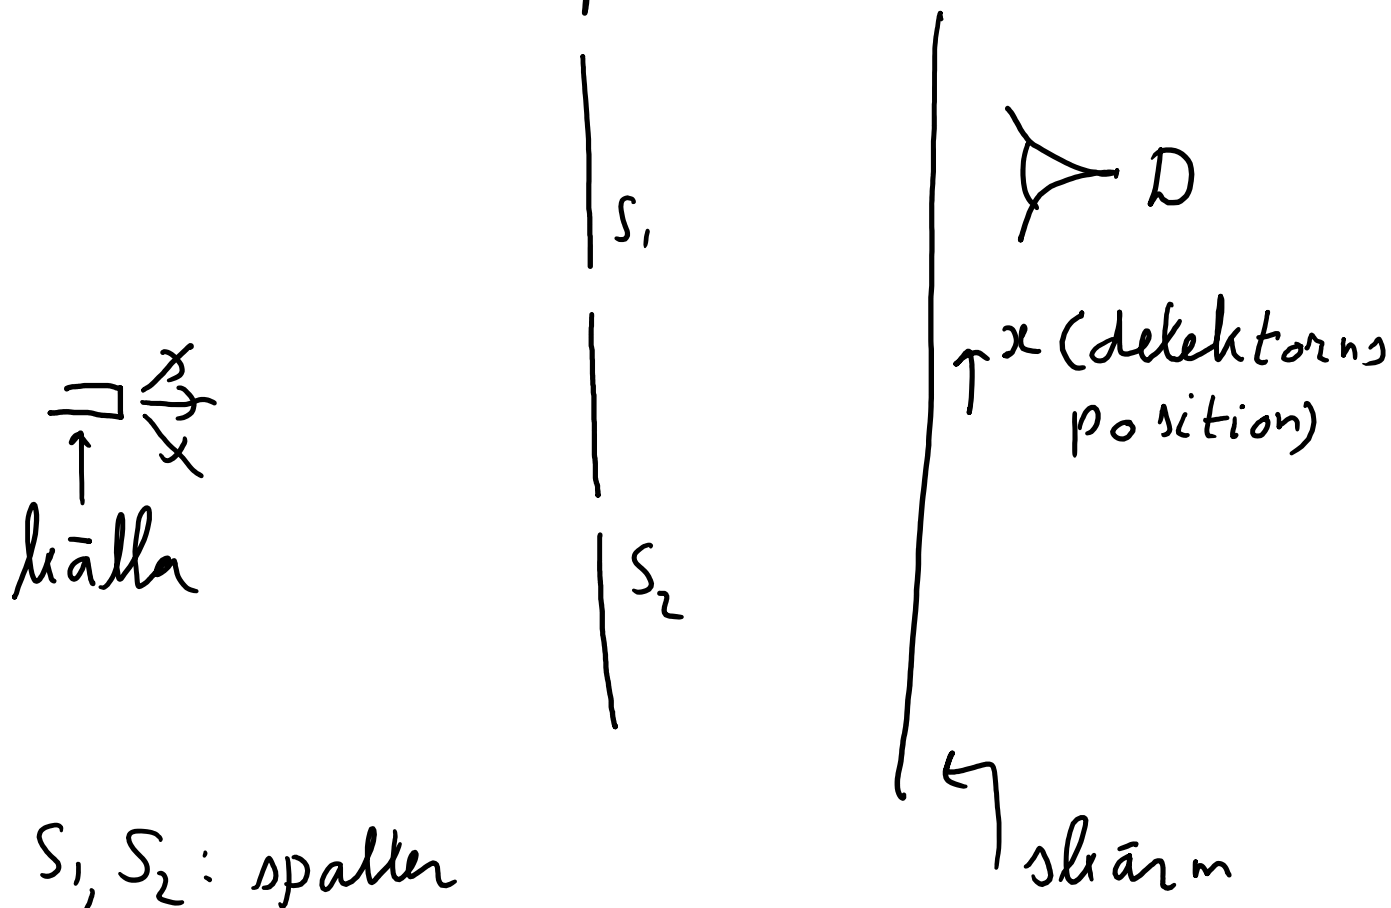 S₁
D
x (detektorns
position)
källa
S₂
S₁, S₂ : spalter
skärm